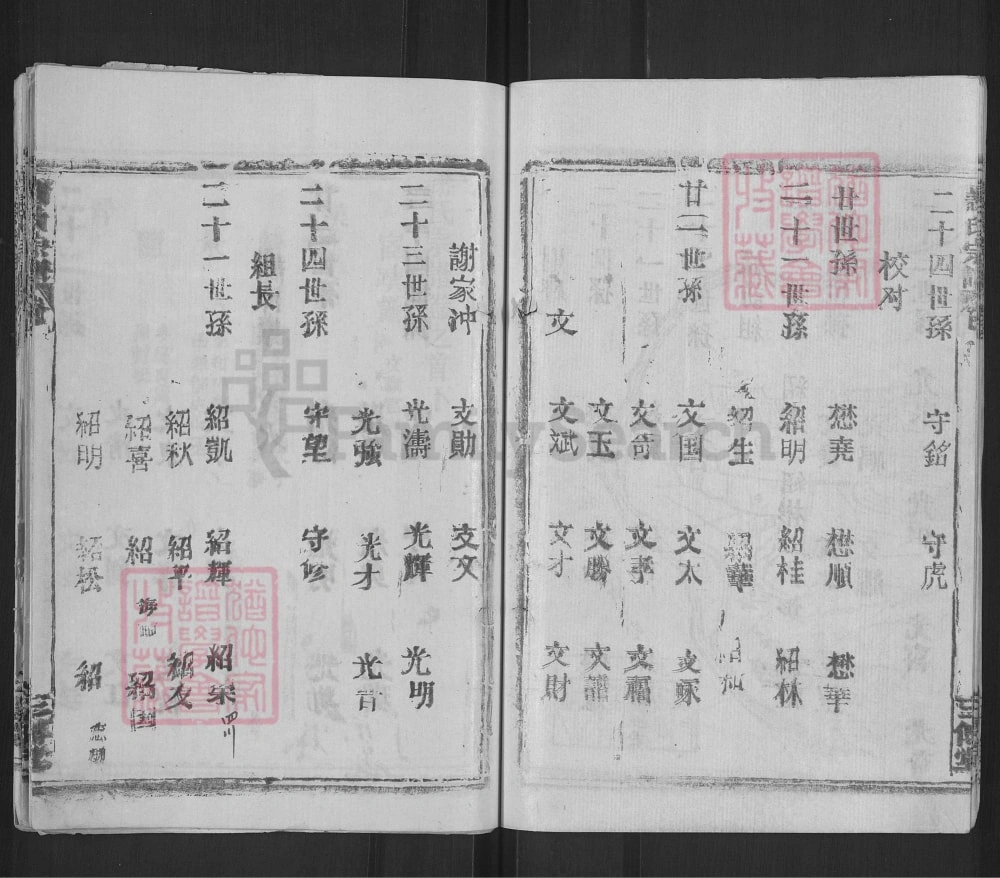 二十四世孫 守銘 守虎
校对
廿世孫 懋堯 懋順 懋華
二十一世孫 紹明 紹桂 紹林
紹生 紹華 紹
廿二世孫 文国 文太 文
文奇 文李 文福
文玉 文勝 文
文 文斌 文才 文財
謝家冲 文勛 文文
二十三世孫 光濤 光輝 光明
光強 光才 光首
二十四世孫 守望 守修
組長
二十一世孫 紹凱 紹輝 紹荣 四川
紹秋 紹平 紹友
紹喜 紹 紹国
紹明 紹松 紹
FamilySearch